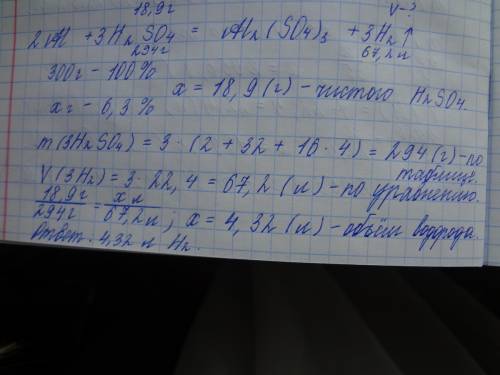 18,9г V-?
2Al + 3H₂SO₄ = Al₂(SO₄)₃ + 3H₂↑
294г 67,2л
300г - 100%
xг - 6,3% x = 18,9(г) - чистого H₂SO₄.
m(3H₂SO₄) = 3·(2+32+16·4) = 294(г) - по таблице.
V(3H₂) = 3·22,4 = 67,2(л) - по уравнению.
18,9г/294г = xл/67,2л; x = 4,32(л) - объём водорода.
Ответ. 4,32 л H₂.